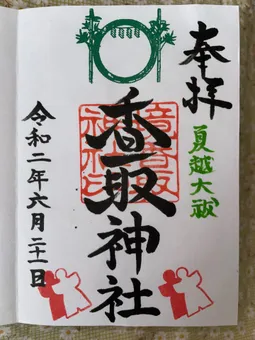 奉拝
夏越大祓
香取神社
令和二年六月二十一日